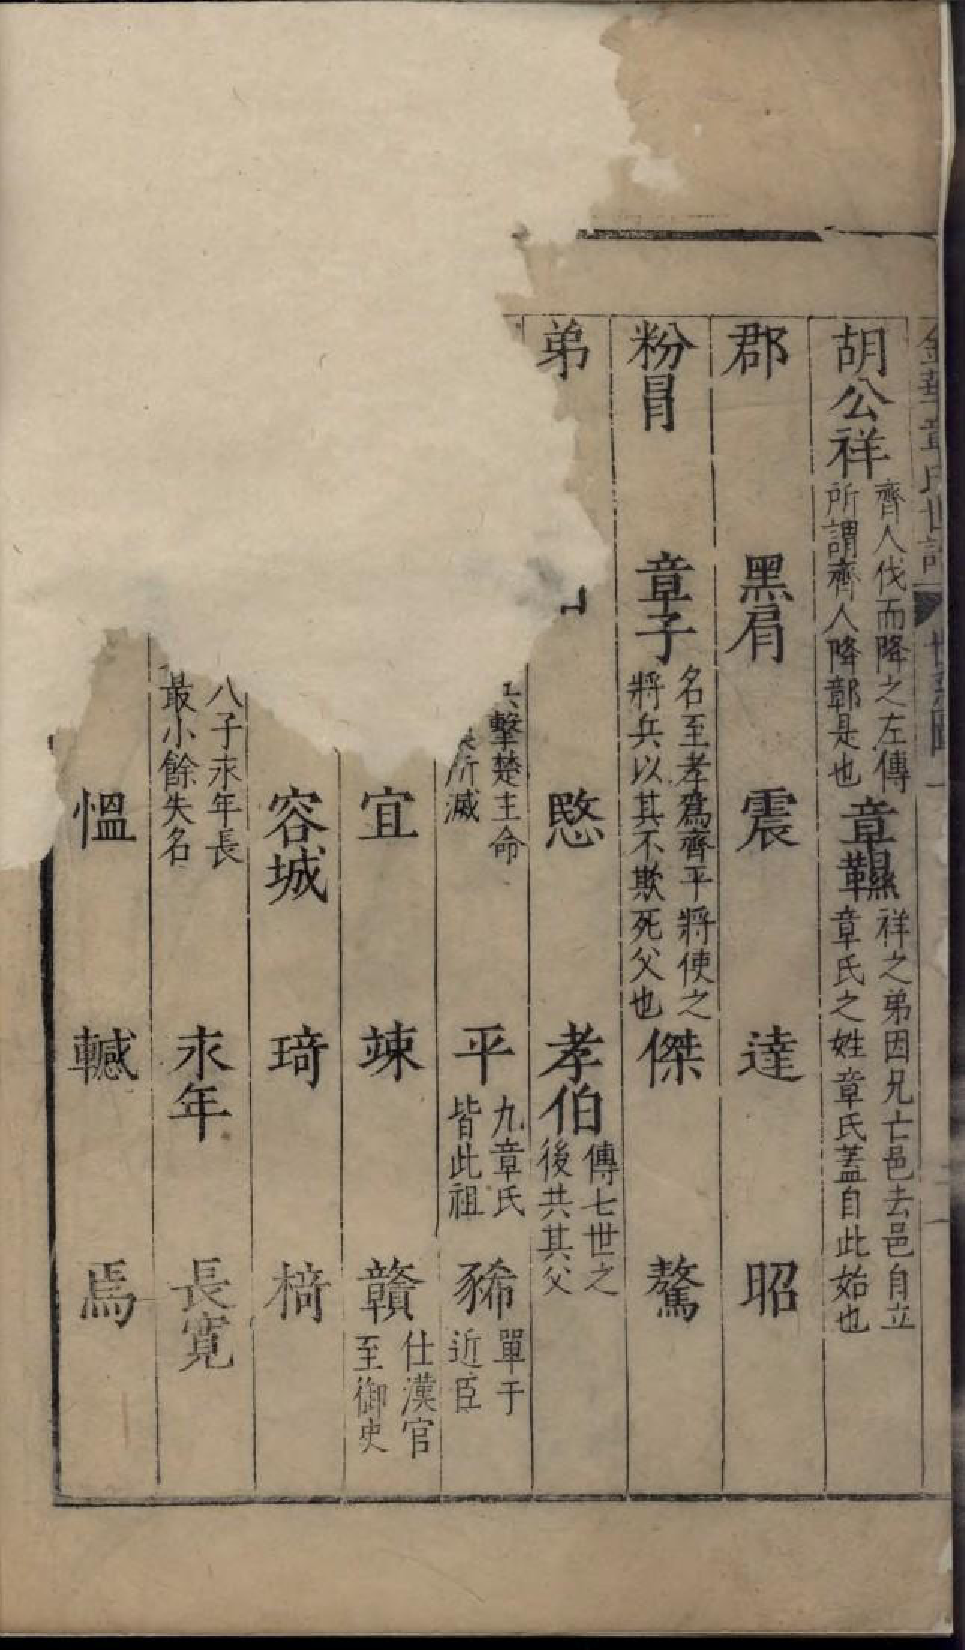 金華章氏世譜 世系圖 一
胡公祥 齊人伐而降之左傳所謂齊人降鄣是也 章韅 祥之弟因兄亡邑去邑自立章氏之姓章氏蓋自此始也
郡 黑肩 震 達 昭
粉冒 章子 名至孝爲齊平將使之將兵以其不欺死父也 傑 驁
弟 愍 孝伯 傳七世之後共其父
擊楚王命 所滅 平 九章氏皆此祖 豨 單于近臣
宜 竦 贛 仕漢官至御史
容城 琦 椅
八子永年長最小餘失名 永年 長寬
愠 轗 焉